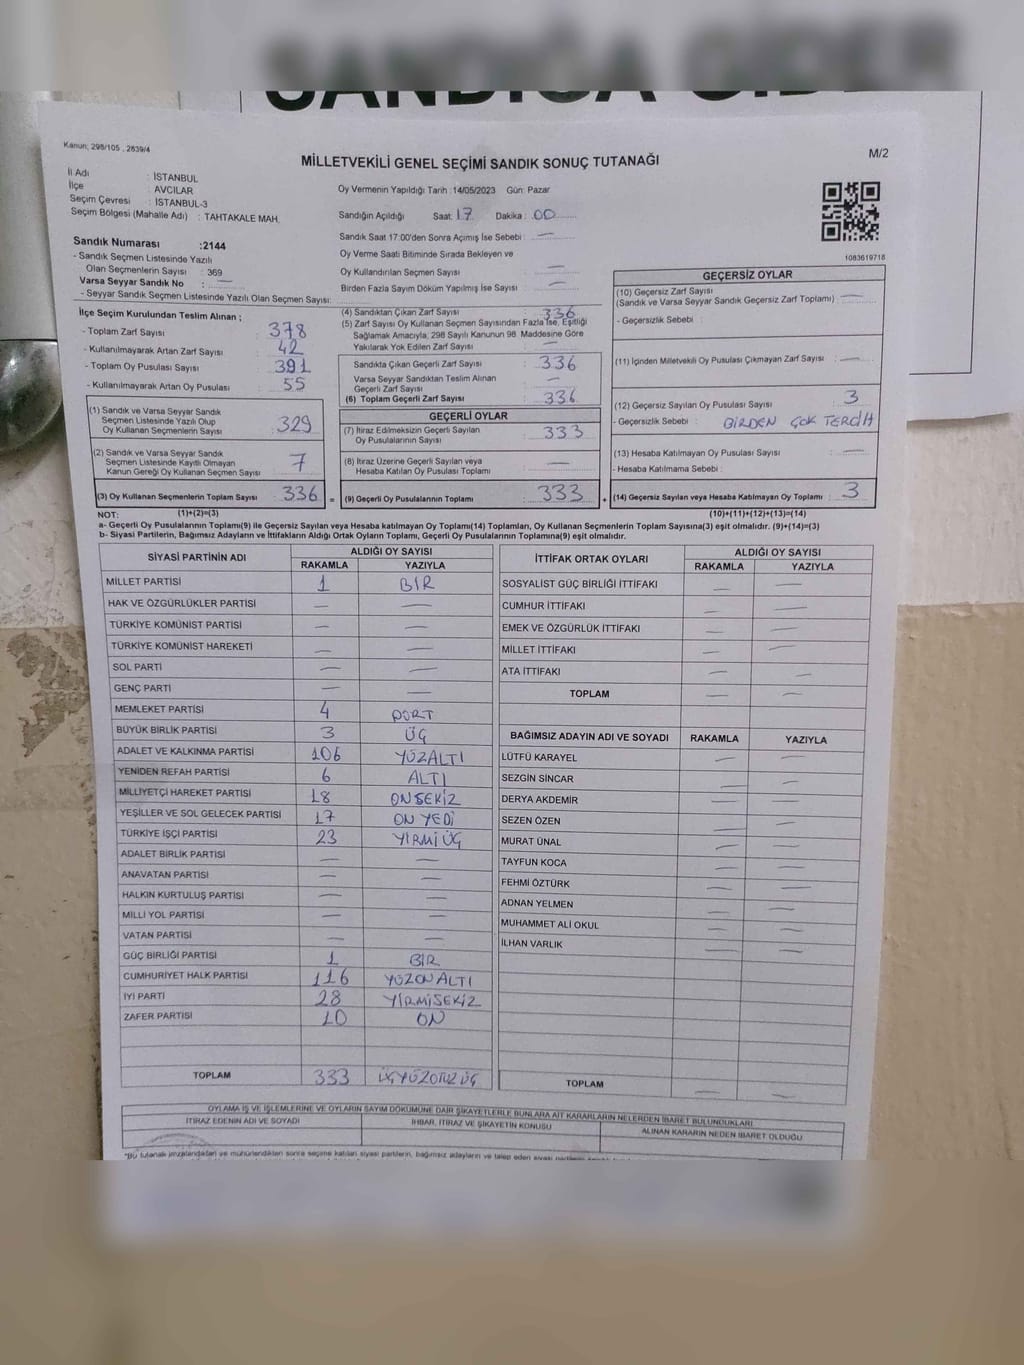 SANDIĞA GİDE
Kanun; 298/105 , 2839/4
M/2
MİLLETVEKİLİ GENEL SEÇİMİ SANDIK SONUÇ TUTANAĞI
İl Adı : İSTANBUL
İlçe : AVCILAR
Seçim Çevresi : İSTANBUL-3
Seçim Bölgesi (Mahalle Adı) : TAHTAKALE MAH.
Oy Vermenin Yapıldığı Tarih :14/05/2023 Gün: Pazar
Sandığın Açıldığı Saat: 17 Dakika : 00
Sandık Saat 17:00'den Sonra Açımış İse Sebebi : —
Oy Verme Saati Bitiminde Sırada Bekleyen ve
Oy Kullandırılan Seçmen Sayısı : —
Birden Fazla Sayım Döküm Yapılmış İse Sayısı : —
1083619718
Sandık Numarası :2144
- Sandık Seçmen Listesinde Yazılı
Olan Seçmenlerin Sayısı : 369
Varsa Seyyar Sandık No : —
- Seyyar Sandık Seçmen Listesinde Yazılı Olan Seçmen Sayısı:
İlçe Seçim Kurulundan Teslim Alınan ;
- Toplam Zarf Sayısı : 378
- Kullanılmayarak Artan Zarf Sayısı : 42
- Toplam Oy Pusulası Sayısı : 391
- Kullanılmayarak Artan Oy Pusulası : 55
(1) Sandık ve Varsa Seyyar Sandık
Seçmen Listesinde Yazılı Olup
Oy Kullanan Seçmenlerin Sayısı : 329
(2) Sandık ve Varsa Seyyar Sandık
Seçmen Listesinde Kayıtlı Olmayan
Kanun Gereği Oy Kullanan Seçmen Sayısı : 7
(3) Oy Kullanan Seçmenlerin Toplam Sayısı : 336
(4) Sandıktan Çıkan Zarf Sayısı : 336
(5) Zarf Sayısı Oy Kullanan Seçmen Sayısından Fazla İse, Eşitliği
Sağlamak Amacıyla, 298 Sayılı Kanunun 98. Maddesine Göre
Yakılarak Yok Edilen Zarf Sayısı : —
Sandıkta Çıkan Geçerli Zarf Sayısı : 336
Varsa Seyyar Sandıktan Teslim Alınan
Geçerli Zarf Sayısı : —
(6) Toplam Geçerli Zarf Sayısı : 336
GEÇERLİ OYLAR
(7) İtiraz Edilmeksizin Geçerli Sayılan
Oy Pusulalarının Sayısı : 333
(8) İtiraz Üzerine Geçerli Sayılan veya
Hesaba Katılan Oy Pusulası Toplamı : —
= (9) Geçerli Oy Pusulalarının Toplamı : 333
GEÇERSİZ OYLAR
(10) Geçersiz Zarf Sayısı : —
(Sandık ve Varsa Seyyar Sandık Geçersiz Zarf Toplamı)
- Geçersizlik Sebebi :
(11) İçinden Milletvekili Oy Pusulası Çıkmayan Zarf Sayısı : —
(12) Geçersiz Sayılan Oy Pusulası Sayısı : 3
- Geçersizlik Sebebi : BİRDEN ÇOK TERCİH
(13) Hesaba Katılmayan Oy Pusulası Sayısı : —
- Hesaba Katılmama Sebebi :
+ (14) Geçersiz Sayılan veya Hesaba Katılmayan Oy Toplamı : 3
NOT: (1)+(2)=(3) (10)+(11)+(12)+(13)=(14)
a- Geçerli Oy Pusulalarının Toplamı(9) ile Geçersiz Sayılan veya Hesaba katılmayan Oy Toplamı(14) Toplamları, Oy Kullanan Seçmenlerin Toplam Sayısına(3) eşit olmalıdır. (9)+(14)=(3)
b- Siyasi Partilerin, Bağımsız Adayların ve İttifakların Aldığı Ortak Oyların Toplamı, Geçerli Oy Pusulalarının Toplamına(9) eşit olmalıdır.
SİYASİ PARTİNİN ADI ALDIĞI OY SAYISI
RAKAMLA YAZIYLA
MİLLET PARTİSİ 1 BİR
HAK VE ÖZGÜRLÜKLER PARTİSİ — —
TÜRKİYE KOMÜNİST PARTİSİ — —
TÜRKİYE KOMÜNİST HAREKETİ — —
SOL PARTİ — —
GENÇ PARTİ — —
MEMLEKET PARTİSİ 4 DÖRT
BÜYÜK BİRLİK PARTİSİ 3 ÜÇ
ADALET VE KALKINMA PARTİSİ 106 YÜZALTI
YENİDEN REFAH PARTİSİ 6 ALTI
MİLLİYETÇİ HAREKET PARTİSİ 18 ONSEKİZ
YEŞİLLER VE SOL GELECEK PARTİSİ 17 ON YEDİ
TÜRKİYE İŞÇİ PARTİSİ 23 YİRMİ ÜÇ
ADALET BİRLİK PARTİSİ — —
ANAVATAN PARTİSİ — —
HALKIN KURTULUŞ PARTİSİ — —
MİLLİ YOL PARTİSİ — —
VATAN PARTİSİ — —
GÜÇ BİRLİĞİ PARTİSİ 1 BİR
CUMHURİYET HALK PARTİSİ 116 YÜZONALTI
İYİ PARTİ 28 YİRMİSEKİZ
ZAFER PARTİSİ 10 ON
TOPLAM 333 ÜÇYÜZOTUZÜÇ
İTTİFAK ORTAK OYLARI ALDIĞI OY SAYISI
RAKAMLA YAZIYLA
SOSYALİST GÜÇ BİRLİĞİ İTTİFAKI — —
CUMHUR İTTİFAKI — —
EMEK VE ÖZGÜRLÜK İTTİFAKI — —
MİLLET İTTİFAKI — —
ATA İTTİFAKI — —
TOPLAM — —
BAĞIMSIZ ADAYIN ADI VE SOYADI RAKAMLA YAZIYLA
LÜTFÜ KARAYEL — —
SEZGİN SİNCAR — —
DERYA AKDEMİR — —
SEZEN ÖZEN — —
MURAT ÜNAL — —
TAYFUN KOCA — —
FEHMİ ÖZTÜRK — —
ADNAN YELMEN — —
MUHAMMET ALİ OKUL — —
İLHAN VARLIK — —
TOPLAM — —
OYLAMA İŞ VE İŞLEMLERİNE VE OYLARIN SAYIM DÖKÜMÜNE DAİR ŞİKAYETLERLE BUNLARA AİT KARARLARIN NELERDEN İBARET BULUNDUKLARI
İTİRAZ EDENİN ADI VE SOYADI İHBAR, İTİRAZ VE ŞİKAYETİN KONUSU ALINAN KARARIN NEDEN İBARET OLDUĞU
*Bu tutanak imzalandıktan ve mühürlendikten sonra seçime katılan siyasi partilerin, bağımsız adayların ve talep eden siyasi